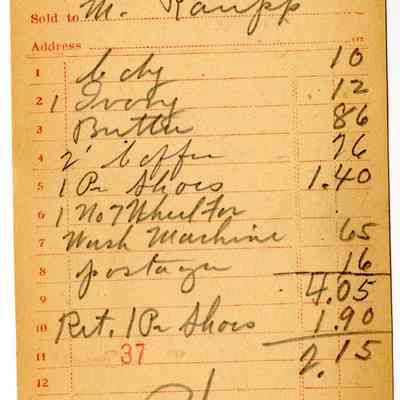 Sold to M. Raupp
Address
1 Cdy 10
2 1 Ivory 12
3 Butter 86
4 2 Coffee 76
5 1 Pr Shoes 1.40
6 1 No 7 Wheel for
7 Wash Machine 65
8 postage 16
9 4.05
10 Ret. 1 Pr Shoes 1.90
11 37 2.15
12